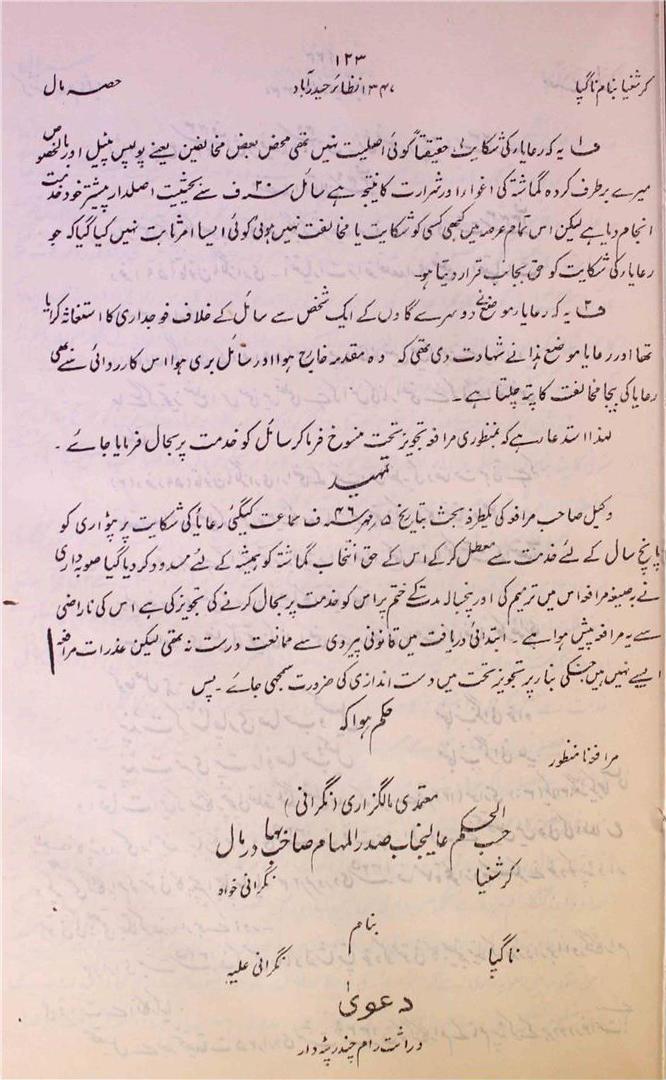 ۱۲۳
کرشنیا بنام ناگپا ۱۳۴۷ نظائر حیدرآباد حصہ مال
ف۱ یہ کہ رعایاء کی شکایت حقیقتاً کوئی اصلیت نہیں تھی محض بعض مخالفین یعنے پولیس پٹیل اور بالخصوص
میرے برطرف کردہ گماشتہ کی اغوا اور شرارت کا نتیجہ ہے سائل ۲۰ سنہ ف سے بحیثیت اصلدار پیشتر خود خدمت
انجام دیا ہے لیکن اس تمام عرصہ میں کبھی کسی کو شکایت یا مخالفت نہیں ہوئی کوئی ایسا امر ثابت نہیں کیا گیا کہ جو
رعایاء کی شکایت کو حق بجانب قرار دیتا ہو۔
ف۲ یہ کہ رعایا موضع نے دوسرے گاوں کے ایک شخص سے سائل کے خلاف فوجداری کا استغاثہ کرایا
تھا اور رعایا موضع ہذا نے شہادت دی تھی کہ وہ مقدمہ خارج ہوا اور سائل بری ہوا اس کارروائی سے بھی
رعایا کی بیجا مخالفت کا پتہ چلتا ہے۔
لہذا استدعا ہے کہ بمنظوری مرافعہ تجویز تحت منسوخ فرما کر سائل کو خدمت پر بحال فرمایا جائے۔
تمہید
وکیل صاحب مرافعہ کی یکطرفہ بحث بتاریخ ۵ مہر ۴۶ سنہ ف سماعت کیگئی رعایا کی شکایت پر پٹواری کو
پانچ سال کے لئے خدمت سے معطل کر کے اس کے حق انتخاب گماشتہ کو ہمیشہ کے لئے مسدود کر دیا گیا صوبہ داری
نے بصیغہ مرافعہ اس میں ترمیم کی اور پنجسالہ مدت کے ختم پر اس کو خدمت پر بحال کرنے کی تجویز کی ہے اس کی ناراضی
سے یہ مرافعہ پیش ہوا ہے۔ ابتدائی دریافت میں قانونی پیروی سے ممانعت درست نہ تھی لیکن عذرات مرافعہ
ایسے نہیں ہیں جنکی بناء پر تجویز تحت میں دست اندازی کی ضرورت سمجھی جائے۔ پس
حکم ہوا کہ
مرافعہ نامنظور
معتمدی مالگزاری (نگرانی)
حسب الحکم عالیجناب صدر المہام صاحب بہادر مال
کرشنیا نگرانی خواہ
بنام
ناگپا نگرانی علیہ
دعویٰ
وراثت رام چندر پٹہ دار